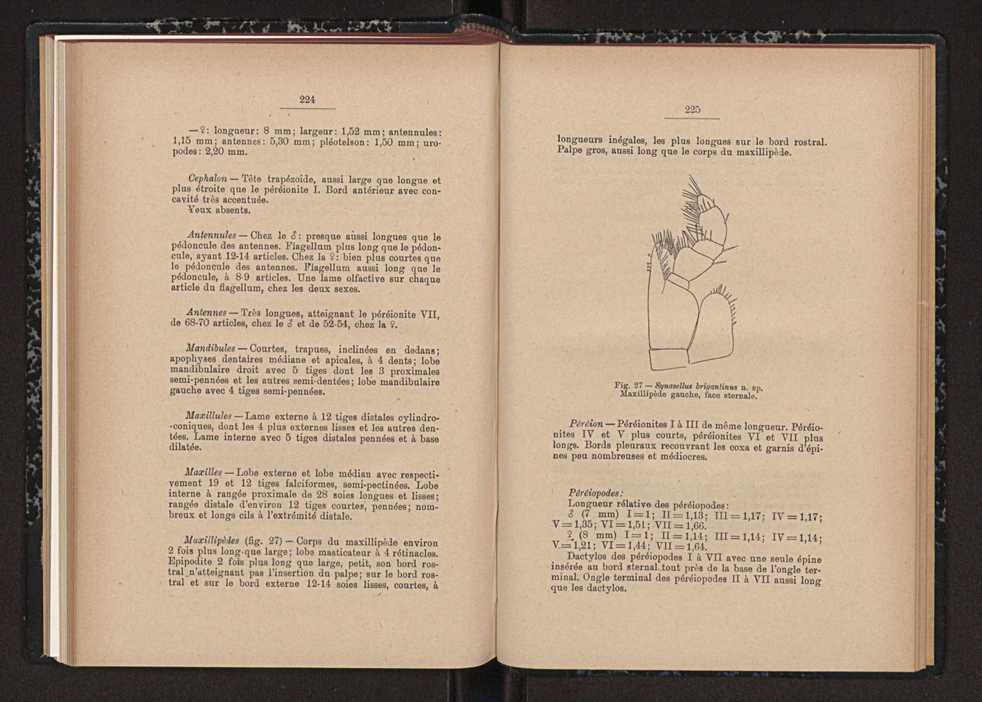 224
— ♀: longueur: 8 mm; largeur: 1,52 mm; antennules:
1,15 mm; antennes: 5,30 mm; pléotelson: 1,50 mm; uro-
podes: 2,20 mm.
Cephalon — Tête trapézoïde, aussi large que longue et
plus étroite que le péréionite I. Bord antérieur avec con-
cavité très accentuée.
Yeux absents.
Antennules — Chez le ♂: presque aussi longues que le
pédoncule des antennes. Flagellum plus long que le pédon-
cule, ayant 12-14 articles. Chez la ♀: bien plus courtes que
le pédoncule des antennes. Flagellum aussi long que le
pédoncule, à 8-9 articles. Une lame olfactive sur chaque
article du flagellum, chez les deux sexes.
Antennes — Très longues, atteignant le péréionite VII,
de 68-70 articles, chez le ♂ et de 52-54, chez la ♀.
Mandibules — Courtes, trapues, inclinées en dedans;
apophyses dentaires médiane et apicales, à 4 dents; lobe
mandibulaire droit avec 5 tiges dont les 3 proximales
semi-pennées et les autres semi-dentées; lobe mandibulaire
gauche avec 4 tiges semi-pennées.
Maxillules — Lame externe à 12 tiges distales cylindro-
-coniques, dont les 4 plus externes lisses et les autres den-
tées. Lame interne avec 5 tiges distales pennées et à base
dilatée.
Maxilles — Lobe externe et lobe médian avec respecti-
vement 19 et 12 tiges falciformes, semi-pectinées. Lobe
interne à rangée proximale de 28 soies longues et lisses;
rangée distale d'environ 12 tiges courtes, pennées; nom-
breux et longs cils à l'extrémité distale.
Maxillipèdes (fig. 27) — Corps du maxillipède environ
2 fois plus long que large; lobe masticateur à 4 rétinacles.
Epipodite 2 fois plus long que large, petit, son bord ros-
tral n'atteignant pas l'insertion du palpe; sur le bord ros-
tral et sur le bord externe 12-14 soies lisses, courtes, à
225
longueurs inégales, les plus longues sur le bord rostral.
Palpe gros, aussi long que le corps du maxillipède.
Fig. 27 — Synasellus brigantinus n. sp.
Maxillipède gauche, face sternale.
Péréion — Péréionites I à III de même longueur. Péréio-
nites IV et V plus courts, péréionites VI et VII plus
longs. Bords pleuraux recouvrant les coxa et garnis d'épi-
nes peu nombreuses et médiocres.
Péréiopodes:
Longueur rélative des péréiopodes:
♂ (7 mm) I = 1; II = 1,13; III = 1,17; IV = 1,17;
V = 1,35; VI = 1,51; VII = 1,66.
♀ (8 mm) I = 1; II = 1,14; III = 1,14; IV = 1,14;
V = 1,21; VI = 1,44; VII = 1,64.
Dactylos des péréiopodes I à VII avec une seule épine
insérée au bord sternal tout près de la base de l'ongle ter-
minal. Ongle terminal des péréiopodes II à VII aussi long
que les dactylos.